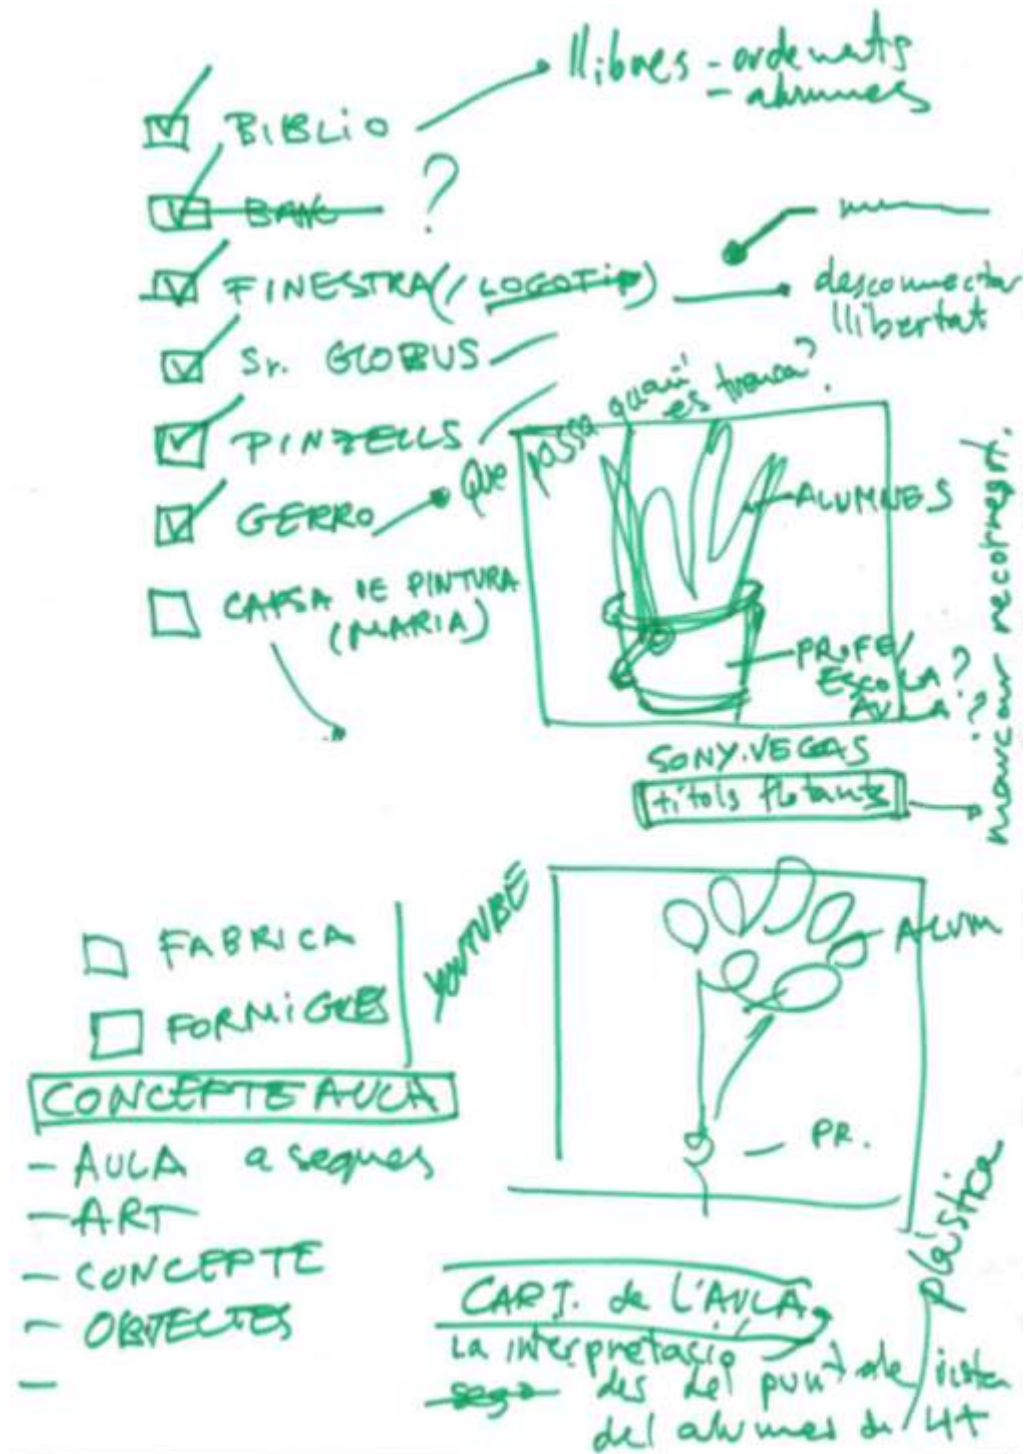 llibres - ordenats
- alumnes
BIBLIO
BANC ?
FINESTRA (/ LOGOTIP)
desconnectar
llibertat
Sr. GLOBUS
PINZELLS
Que passa quan
es trenca?
GERRO
ALUMNES
CAPSA DE PINTURA
(MARIA)
PROFE/
ESCOLA?
AULA?
SONY.VEGAS
títols flotants
marcar recorregut.
YOUTUBE
FABRICA
FORMIGUES
ALUM
PR.
CONCEPTE AULA
- AULA a seques
- ART
- CONCEPTE
- OBJECTES
-
plàstica
CART. de L'AULA
La interpretació
des del punt de vista
del alumnes de 4t